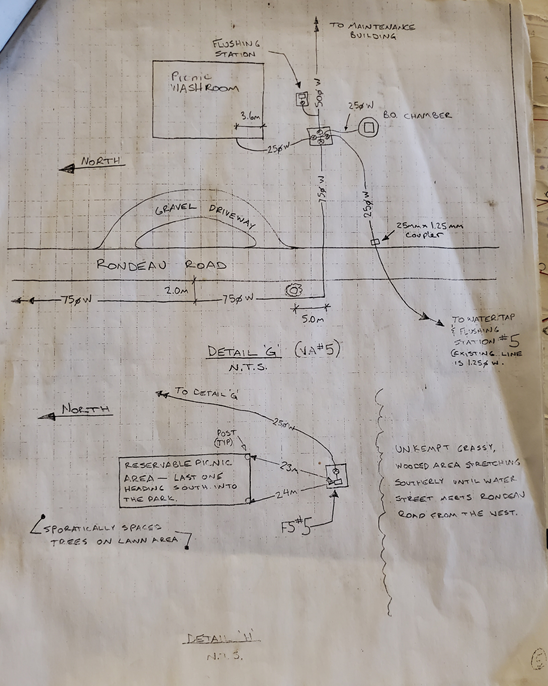 TO MAINTENANCE
BUILDING
FLUSHING
STATION
PICNIC
WASHROOM
50ØW
3.6m
25ØW
25ØW
B.O. CHAMBER
NORTH
75ØW
25ØW
GRAVEL DRIVEWAY
25mm x 1.25mm
COUPLER
RONDEAU ROAD
2.0m
75ØW
75ØW
5.0m
TO WATER TAP
& FLUSHING
STATION #5
(EXISTING LINE
IS 1.25Ø W.
DETAIL 'G' (VA#5)
N.T.S.
TO DETAIL 'G'
NORTH
25ØW
POST
(TYP)
RESERVABLE PICNIC
AREA — LAST ONE
HEADING SOUTH INTO
THE PARK.
23m
24m
UNKEMPT GRASSY,
WOODED AREA STRETCHING
SOUTHERLY UNTIL WATER
STREET MEETS RONDEAU
ROAD FROM THE WEST.
SPORATICALLY SPACED
TREES ON LAWN AREA
FS#5
DETAIL 'H'
N.T.S.